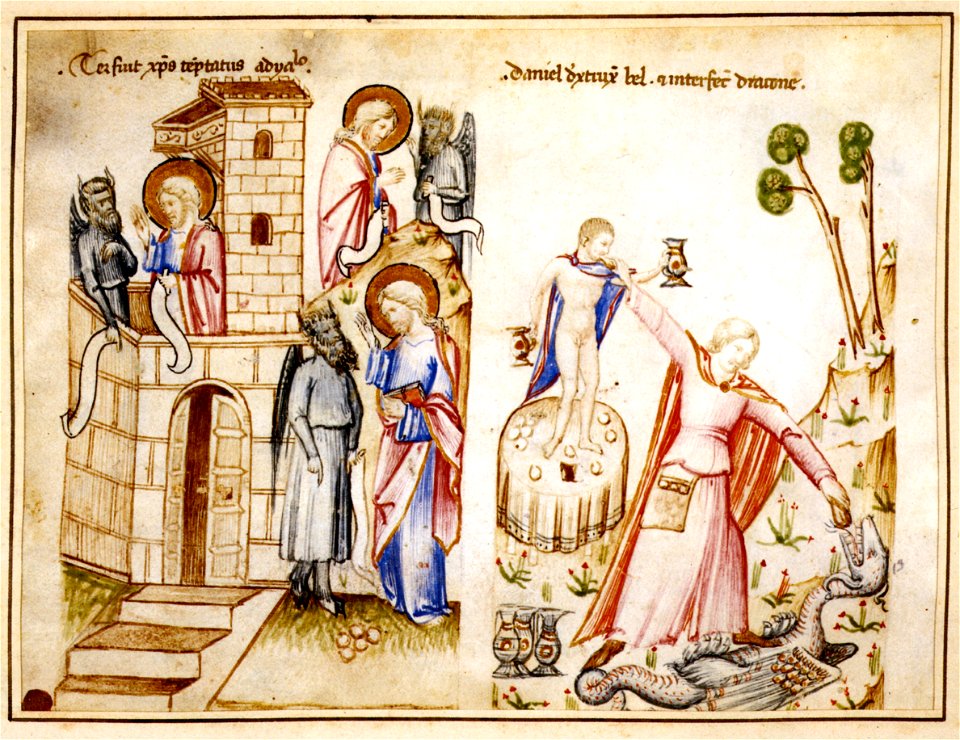 . Ter fuit xp̄s tēptatus a dyalo.
. daniel dxtrux̄ bel . ⁊ interfec̄ dracone .